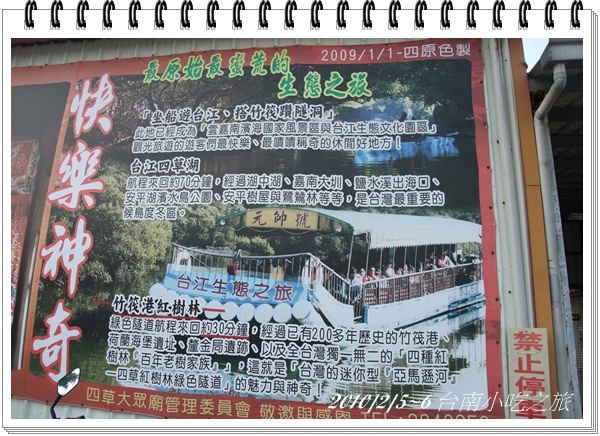 2009/1/1-四原色製
最原始最蠻荒的
生態之旅
快樂神奇
「坐船遊台江、搭竹筏鑽隧洞」
此地已經成為「雲嘉南濱海國家風景區與台江生態文化園區」
觀光旅遊的遊客們最快樂、最嘖嘖稱奇的休閒好地方！
台江四草湖
航程來回約70分鐘，經過湖中湖、嘉南大圳、鹽水溪出海口、
安平湖濱水鳥公園、安平樹屋與鷺鷥林等等，是台灣最重要的
候鳥度冬區。
元帥號
台江生態之旅
竹筏港紅樹林
綠色隧道航程來回約30分鐘，經過已有200多年歷史的竹筏港、
荷蘭海堡遺址、釐金局遺跡、以及全台灣獨一無二的「四種紅
樹林「百年老樹家族」」，這就是「台灣的迷你型「亞馬遜河」
—四草紅樹林綠色隧道」的魅力與神奇！
四草大眾廟管理委員會 敬邀與感恩
禁止停車
2010/2/5~6 台南小吃之旅